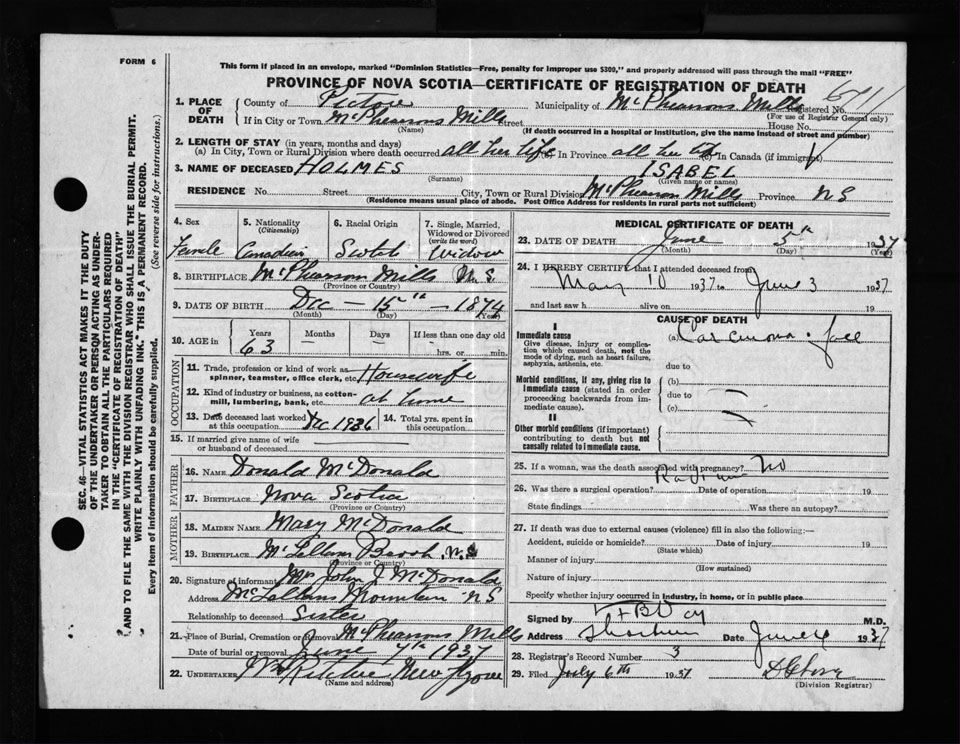 FORM 6
This form if placed in an envelope, marked "Dominion Statistics—Free, penalty for improper use $300," and properly addressed will pass through the mail "FREE"
PROVINCE OF NOVA SCOTIA—CERTIFICATE OF REGISTRATION OF DEATH
1. PLACE OF DEATH
County of Pictou Municipality of McPhearsons Mills Registered No.
(For use of Registrar General only)
If in City or Town McPhearsons Mills Street House No.
(Name) (If death occurred in a hospital or institution, give the name instead of street and number)
2. LENGTH OF STAY (in years, months and days)
(a) In City, Town or Rural Division where death occurred all her life (b) In Province all her life (c) In Canada (if immigrant)
3. NAME OF DECEASED HOLMES ISABEL
(Surname) (Given name or names)
RESIDENCE No. Street City, Town or Rural Division McPhearson Mills Province NS
(Residence means usual place of abode. Post Office Address for residents in rural parts not sufficient)
4. Sex 5. Nationality (Citizenship) 6. Racial Origin 7. Single, Married, Widowed or Divorced (write the word)
Famle Canadien Scotch Widow
8. BIRTHPLACE McPhearson Mills N.S.
(Province or Country)
9. DATE OF BIRTH Dec — 15th — 1874
(Month) (Day) (Year)
10. AGE in Years Months Days If less than one day old
63 — — hrs. or min.
OCCUPATION
11. Trade, profession or kind of work as spinner, teamster, office clerk, etc. Housewife
12. Kind of industry or business, as cotton-mill, lumbering, bank, etc. at home
13. Date deceased last worked at this occupation Dec 1936 14. Total yrs. spent in this occupation
15. If married give name of wife or husband of deceased
FATHER
16. NAME Donald McDonald
17. BIRTHPLACE Nova Scotia
(Province or Country)
MOTHER
18. MAIDEN NAME Mary McDonald
19. BIRTHPLACE McLellans Brook N.S.
(Province or Country)
20. Signature of informant Mrs John J McDonald
Address McLellans Mountain NS
Relationship to deceased Sister
21. Place of Burial, Cremation or Removal McPhearsons Mills
Date of burial or removal June 7th 1937
22. UNDERTAKER Ritchie New Glasgow
(Name and address)
MEDICAL CERTIFICATE OF DEATH
23. DATE OF DEATH June 5th 1937
(Month) (Day) (Year)
24. I HEREBY CERTIFY that I attended deceased from
May 10 1937 to June 3 1937
and last saw h alive on 19
CAUSE OF DEATH
I
Immediate cause
Give disease, injury or complication which caused death, not the mode of dying, such as heart failure, asphyxia, asthenia, etc.
(a) Carcinoma face
due to
Morbid conditions, if any, giving rise to immediate cause (stated in order proceeding backwards from immediate cause).
(b)
due to
(c)
II
Other morbid conditions (if important) contributing to death but not causally related to immediate cause.
25. If a woman, was the death associated with pregnancy? No
26. Was there a surgical operation? Radium Date of operation 19
State findings Was there an autopsy?
27. If death was due to external causes (violence) fill in also the following:—
Accident, suicide or homicide? Date of injury 19
(State which)
Manner of injury
(How sustained)
Nature of injury
Specify whether injury occurred in industry, in home, or in public place
Signed by M.D.
Address Date June 4 1937
28. Registrar's Record Number 3
29. Filed July 6th 1937
(Division Registrar)
SEC. 46—VITAL STATISTICS ACT MAKES IT THE DUTY
OF THE UNDERTAKER OR PERSON ACTING AS UNDER-
TAKER TO OBTAIN ALL THE PARTICULARS REQUIRED
IN THE "CERTIFICATE OF REGISTRATION OF DEATH"
AND TO FILE THE SAME WITH THE DIVISION REGISTRAR WHO SHALL ISSUE THE BURIAL PERMIT.
WRITE PLAINLY WITH UNFADING INK. THIS IS A PERMANENT RECORD.
Every item of information should be carefully supplied. (See reverse side for instructions.)